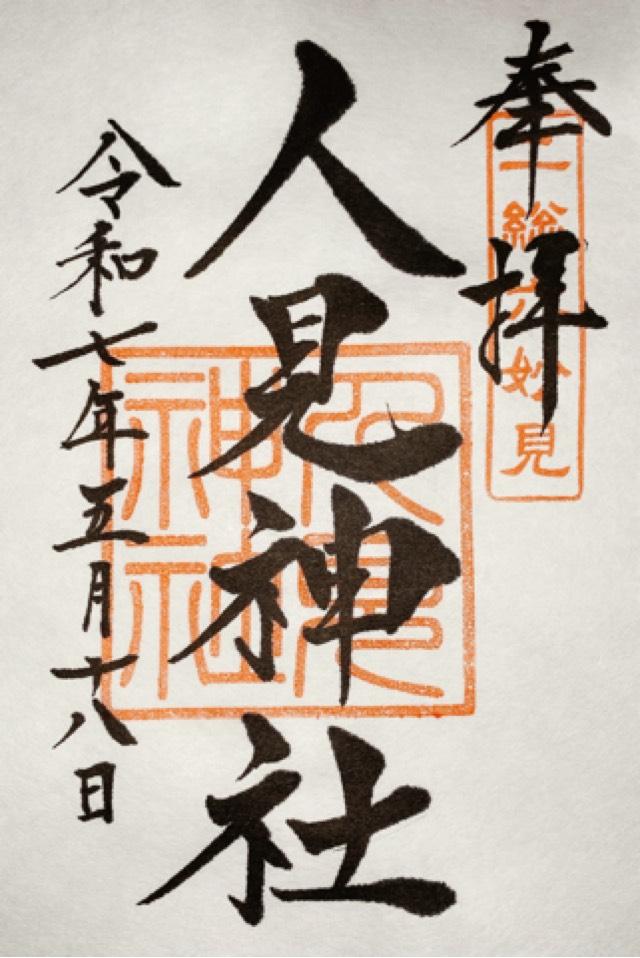 奉拝
総妙見
人見神社
人見神社
令和七年五月十八日